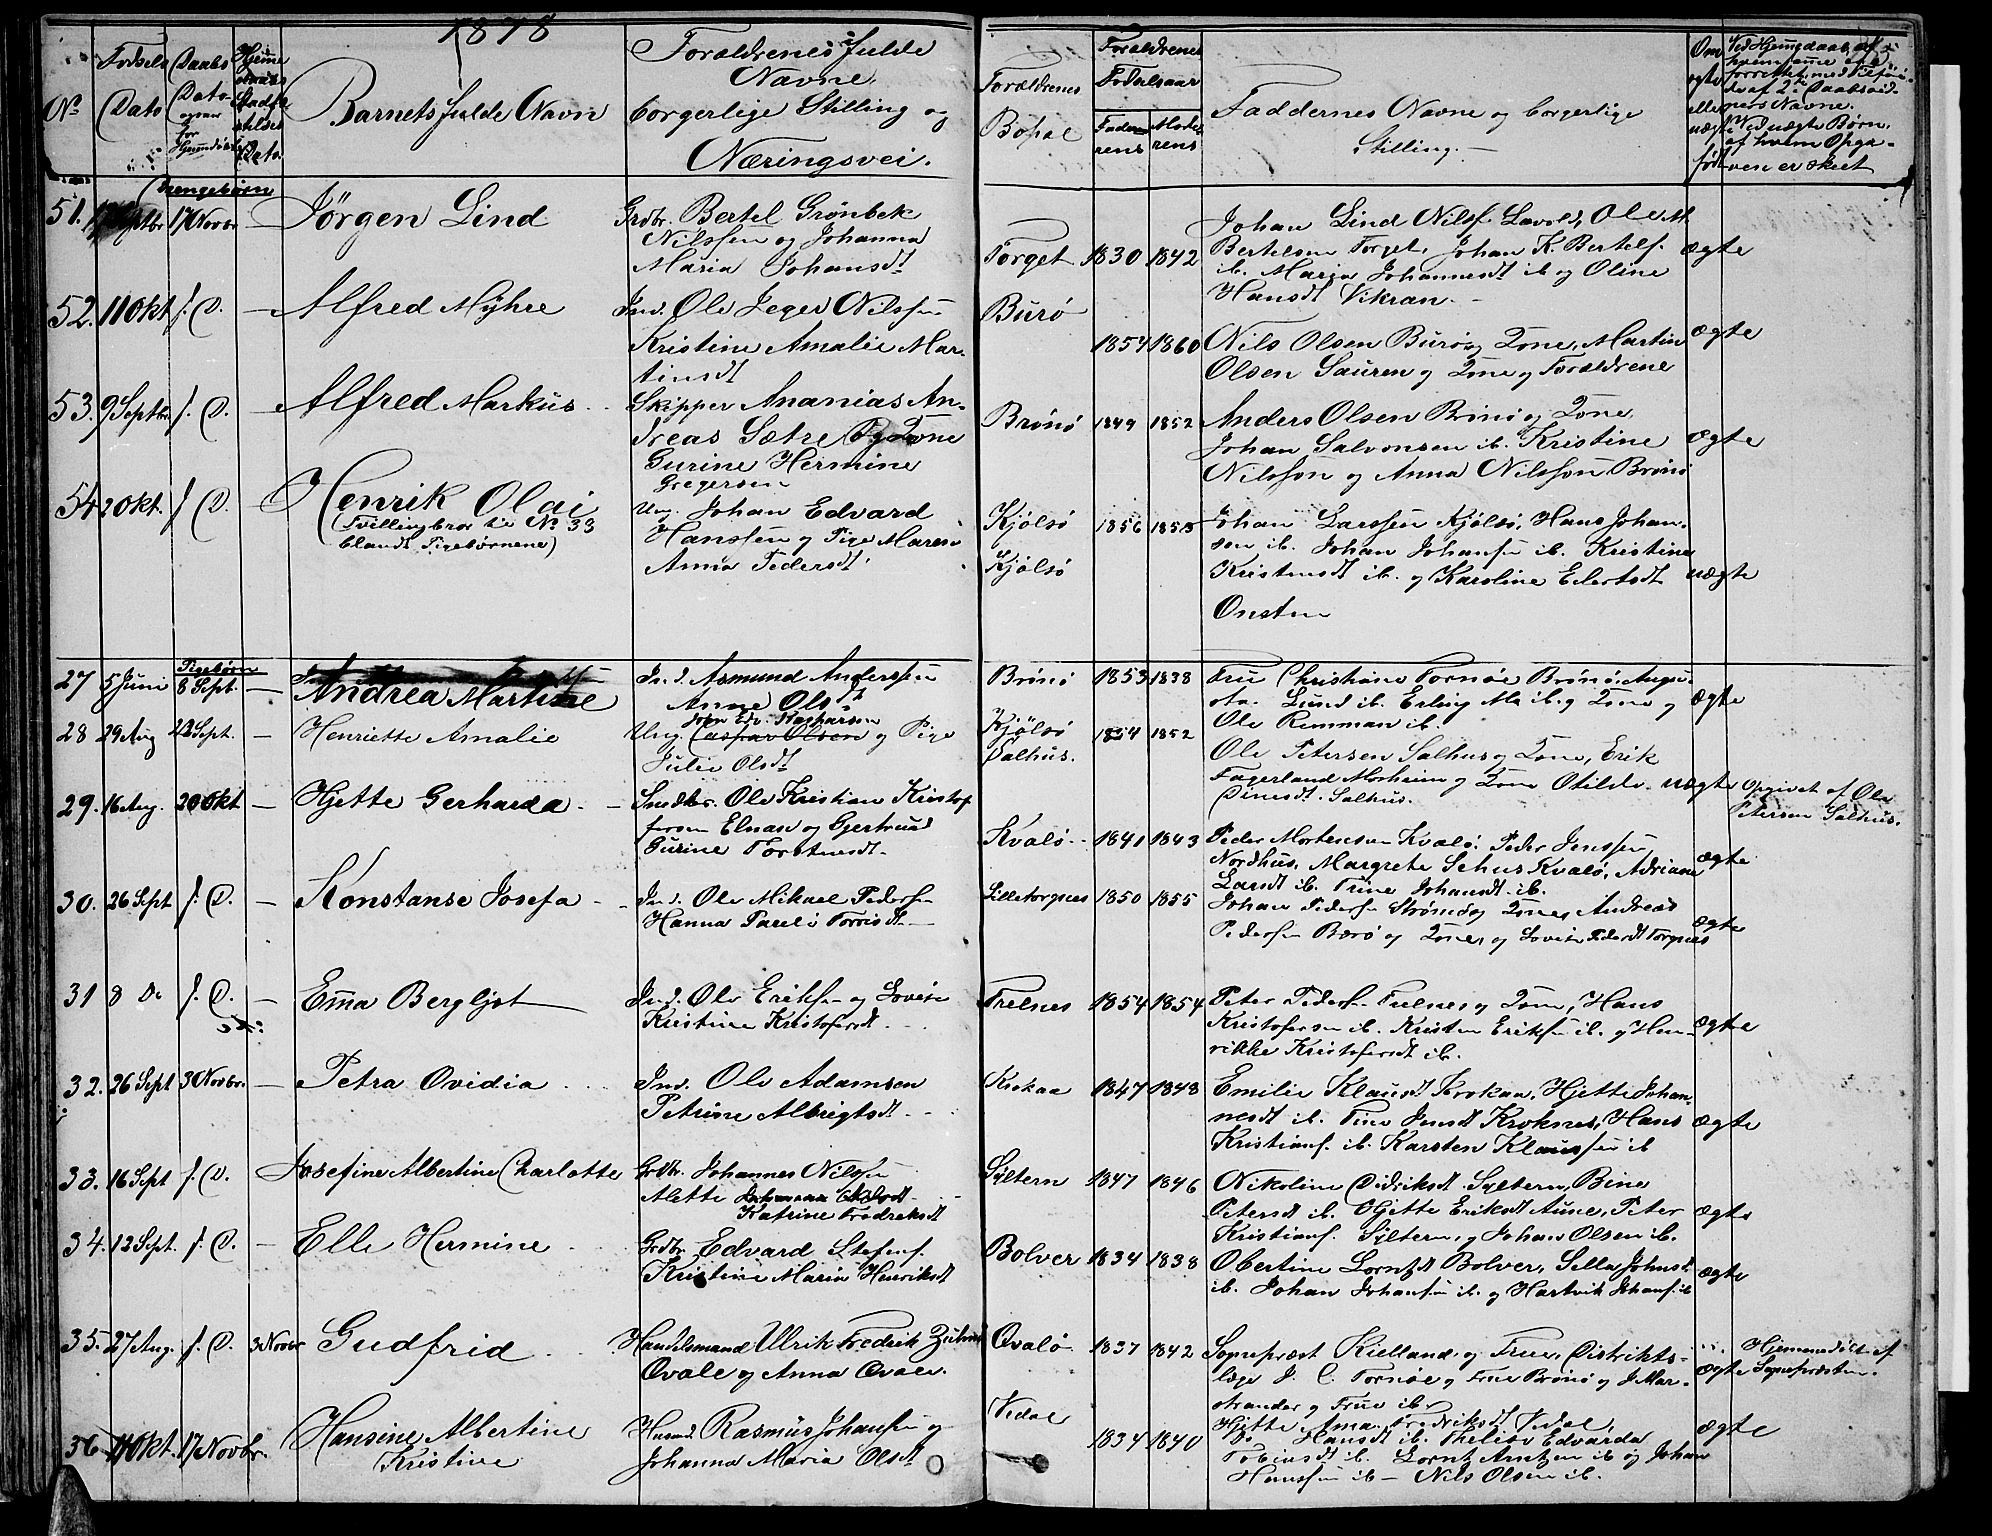 1878
No
Fødsels Dato
Daabs Dato
Barnets fulde Navn
Forældrenes fulde
Navne
borgerlige Stilling og
Næringsvei.
Forældrenes
Bopæl
Forældrenes
Fødselsaar
Faderens
Moderens
Faddernes Navne og borgerlige
Stilling.
Om
ægte
eller
uægte
født
Drengebørn
51. 17 Novbr — Jørgen Lind
Grdbr. Bertel Grønbek
Nilssen og Johanna
Maria Johansdt
Torget 1830 1842
Johan Lind Nilss. Ole M.
Bertelsen Torget, Johan K. Bertels.
ib. Maria Johannesdt ib og Oline
Hansdt Vikran.
ægte
52. 11 Okt f. D. — Alfred Myhre
Ind. Ole Jeger Nilssen
Kristine Amalie Mar-
tinsdt
Burø 1854 1860
Nils Olsen Burø og Kone, Martin
Olsen Sauren og Kone og Forældrene
ægte
53. 9 Septbr. f. D. — Alfred Markus
Skipper Ananias An-
dreas Sætre og Kone
Gurine Hermine
Gregersen
Brønø 1849 1852
Anders Olsen Brønø og Kone
Johan Salvonsen ib. Kristine
Nilsson og Anna Nilsson Brønø
ægte
54. 2 Okt. f. D. — Henrik Olai
(Tvillingbror til No 33
blandt Pigebørnene)
Ung. Johan Edvard
Hanssen og Pige Maren
Anna Pedersdt
Kjølsø
Kjølsø
1856 1855
Johan Larssen Kjølsø, Hans Johan-
sen ib. Johan Johansen ib. Kristine
Kristensdt ib. og Karoline Eilertsdt
uægte
Pigebørn
27 5 Juni 8 Sept. — Andrea Martine
Ind. Asmund Anderssen
Anne Olsdt
Brønø 1853 1838
Fru Christiane Tornøe Brønø, Augu-
sta Lund ib. Erling Moe ib. og Kone og
Ole Remman ib.
ægte
28 29 Aug 22 Sept. — Henriette Amalie
Ung. Caspar Olsen og Pige
Julie Olsdt
Kjølsø
Salhus.
1854 1852
Ole Petersen Salhus og Kone, Erik
Fagerland Mosheim og Kone Otilde
Dinesdt. Salhus.
uægte
Opgivet af Ole
Petersen Salhus.
29. 16 Aug. 20 Okt — Hjette Gerharda
Ole Kristian Kristof
fersen Elnan og Gjertrud
Gurine Torstensdt
Kvalø 1841 1843
Peder Mortensen Kvalø, Peder Jenssen
Nordhus, Margrete Sehus Kvalø, Adriane
Larsdt ib. Trine Johansdt ib.
ægte
30. 26 Sept f. D. — Konstanse Josefa
Ind. Ole Mikael Peders.
Hanna Pareli Torrisdt
Lilletorgnes 1850 1855
Johan Peders. Strøm og Kone, Andreas
Peders. Bærø og Kone, og Lovise Pedersdt Torgnes
ægte
31 8 Do f. D. — Emma Bergljot
Ind. Ole Eriks. og Lovise
Kristine Kristofersdt
Trelnes 1854 1854
Peter Peders. Trelnes og Kone, Hans
Kristofersen ib. Kristen Eriks. ib. og Hen-
rikke Kristofersdt ib.
ægte
32. 26 Sept 3 Novbr. — Petra Ovidia
Ind. Ole Adamsen
Petrine Albrigtsdt
Krokaa 1847 1848
Emilie Klausdt Krokaa, Hjette Johan-
nesdt ib. Tine Jensdt Kroknes, Hans
Kristians. ib. Karsten Klaussen ib
ægte
33. 16 Sept f. D. Josefine Albertine Charlotte
Grdbr. Johannes Nilssen
Aletta
Katrine Fredriksdt
Syltern 1847 1846
Nikoline Didriksdt Syltern, Bine
Petersdt ib. Hjette Eriksdt Aune, Peter
Kristians. Syltern, og Johan Olsen ib.
ægte
34. 12 Sept. f. D. — Elle Hermine
Grdbr. Edvard Stefens.
Kristine Maria Henriksdt
Bolver 1834 1838
Obertine Lorntsdt Bolver, Silla Johnsdt
ib. Johan Johansen ib. og Hartvik Johans. ib
ægte
35. 27 Aug. f. D. 3 Novbr Gudfrid
Handelsmand Ulrik Fredrik
Qvale og Anna Qvale.
Qvalø 1837 1842
Sogneprest Kielland og Frue, Distrikts-
læge J. C. Tornøe og Frue Brønø og J. Mar-
strander og Frue ib.
ægte
Hjemmedøbt af
Sognepresten.
36. 11 Okt. 17 Novbr. Hansine Albertine
Kristine
Husmd. Rasmus Johansen og
Johanna Maria Olsdt
Vedal 1834 1840
Hjette Ama. Fredriksdt Vedal,
Hansdt ib. Thelise Edvarda
Tobiasdt ib. Lornts Arntzen ib og Johan
Hanssen ib — Nils Olsen ib.
ægte